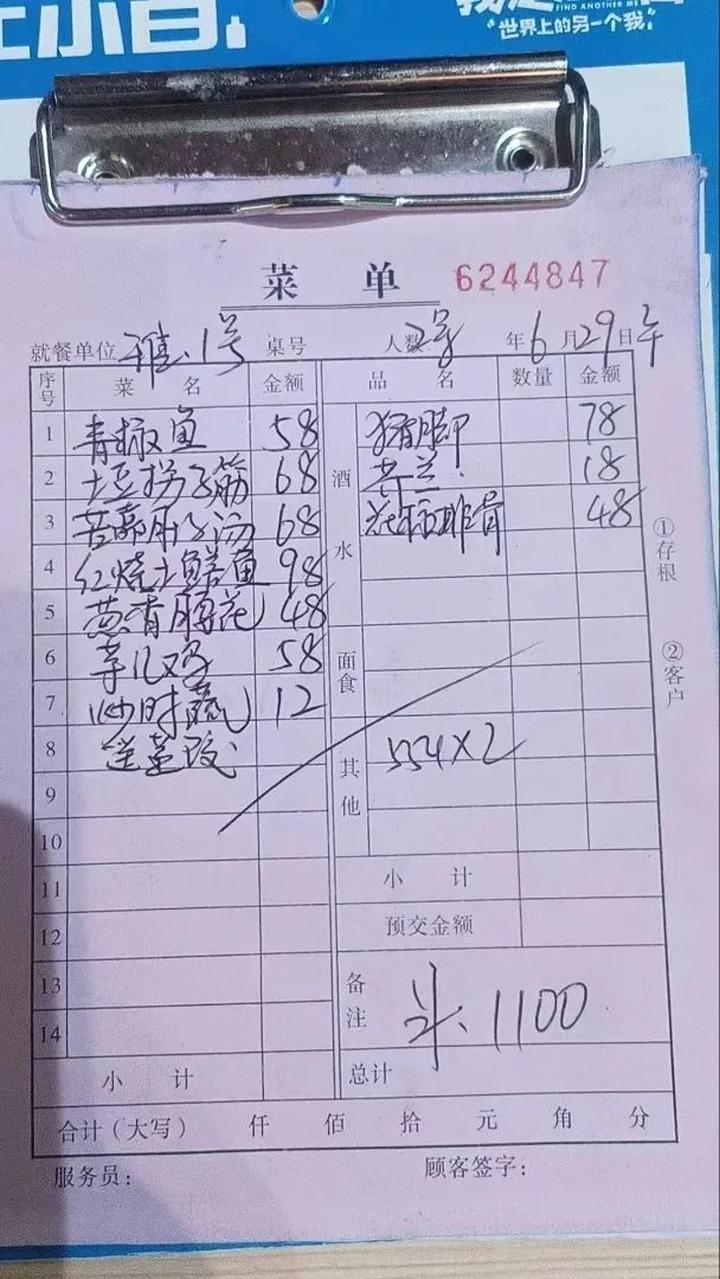 FIND ANOTHER ME
"世界上的另一个我"
菜 单 6244847
就餐单位 雅.1号 桌号 人数 2号 年6月29日午
序号 菜 名 金额 品 名 数量 金额
1 青椒鱼 58 酒水 猪脚 78
2 土豆拐子筋 68 芥兰. 18
3 68 排骨 48
4 红烧土鲢鱼 98
5 葱香腰花 48
6 58 面食
7 炒时蔬 12
8 其他 554×2
9
10
11 小 计
12 预交金额
13 备注 1100
14
小 计 总计
合计(大写) 仟 佰 拾 元 角 分
服务员: 顾客签字:
①存根 ②客户